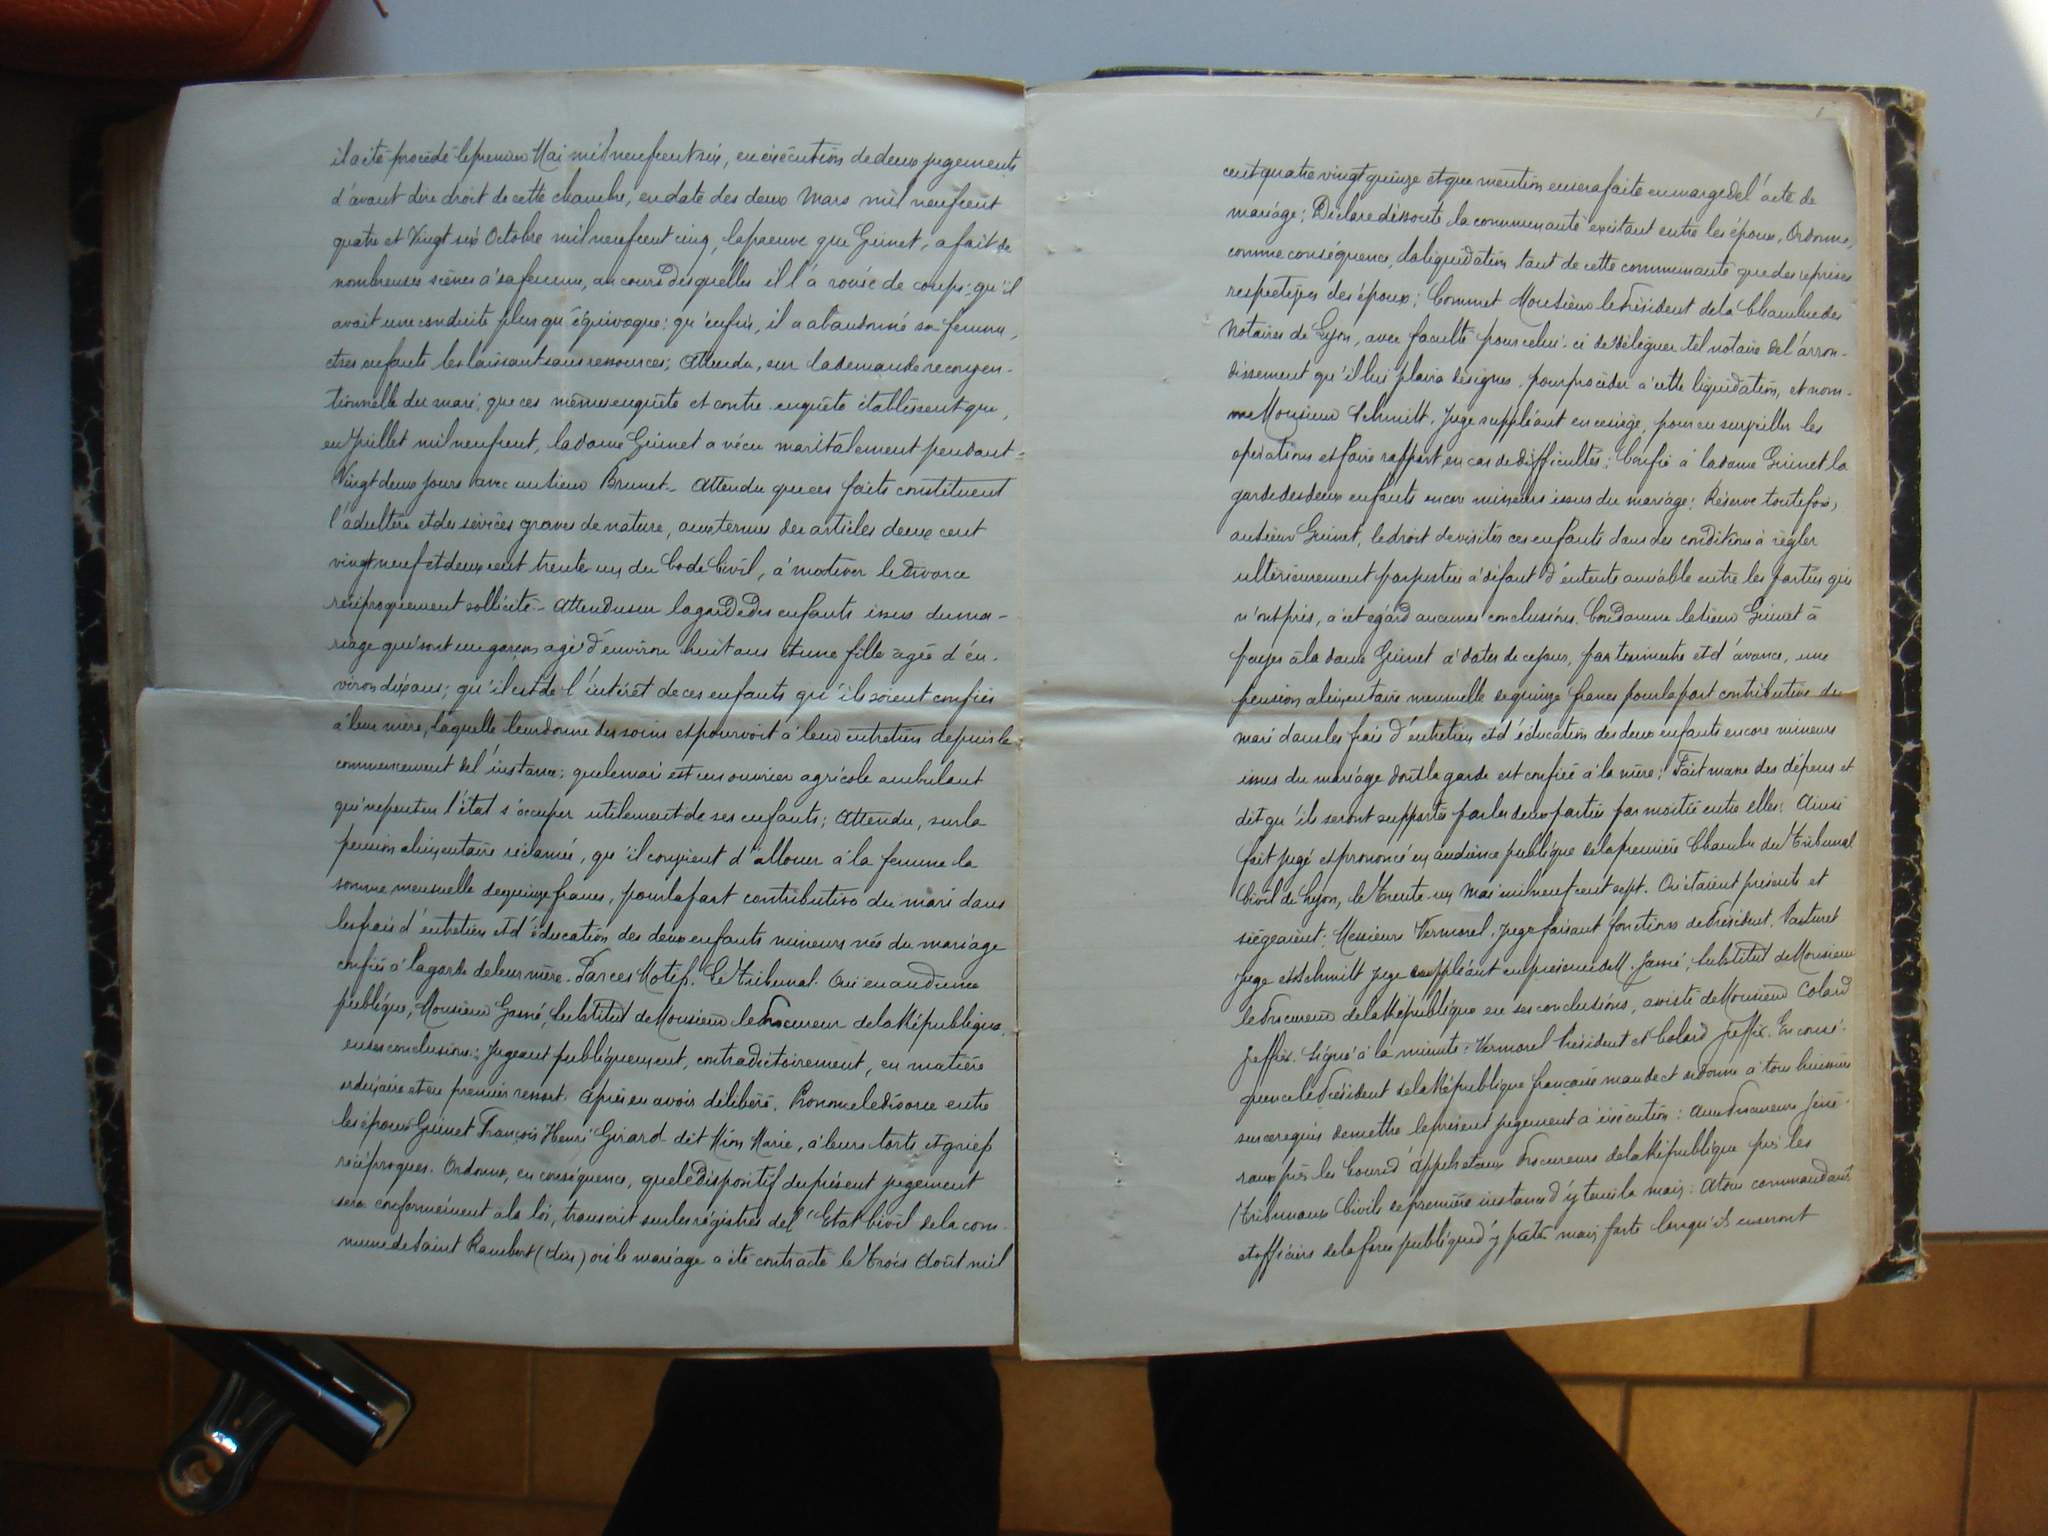 il a été procédé le premier Mai mil neuf cent six, en exécution de deux jugements
d'avant dire droit de cette chambre, en date des deux Mars mil neuf cent
quatre et Vingt six Octobre mil neuf cent cinq, la preuve que Guinet, a fait de
nombreuses scènes à sa femme, au cours desquelles il l'a rouée de coups; qu'il
avait une conduite plus qu'équivoque; qu'enfin, il a abandonné sa femme,
et ses enfants les laissant sans ressources; Attendu, sur la demande reconven-
tionnelle du mari, que ces mêmes enquête et contre-enquête établissent que,
en Juillet mil neuf cent, la dame Guinet a vécu maritalement pendant
Vingt deux jours avec un sieur Brunet - Attendu que ces faits constituent
l'adultère et des sévices graves de nature, aux termes des articles deux cent
vingt neuf et deux cent trente un du Code Civil, à motiver le divorce
réciproquement sollicité - Attendu sur la garde des enfants issus du ma-
riage qui sont un garçon agé d'environ huit ans et une fille âgée d'en-
viron dix ans; qu'il est de l'intérêt de ces enfants qu'ils soient confiés
à leur mère, laquelle leur donne des soins et pourvoit à leur entretien depuis le
commencement de l'instance; que le mari est un ouvrier agricole ambulant
qui n'est peu en l'état s'occuper utilement de ses enfants; Attendu, sur la
pension alimentaire réclamée, qu'il convient d'allouer à la femme la
somme mensuelle de quinze francs, pour la part contributive du mari dans
les frais d'entretien et d'éducation des deux enfants mineurs nés du mariage
confiés à la garde de leur mère. Par ces Motifs. Le Tribunal. Ouï en audience
publique, Monsieur Substitut de Monsieur le Procureur de la République,
en ses conclusions; Jugeant publiquement, contradictoirement, en matière
ordinaire et en premier ressort. Après en avoir délibéré. Prononce le divorce entre
les époux Guinet François Henri Girard dit Mion Marie, à leurs torts et griefs
réciproques. Ordonne, en conséquence, que le dispositif du présent jugement
sera conformément à la loi, transcrit sur les régistres de l'Etat Civil de la com-
mune de Saint Rambert (Ain) où le mariage a été contracté le Trois Août mil
cent quatre vingt quinze et que mention en sera faite en marge de l'acte de
mariage; Déclare dissoute la communauté existant entre les époux, Ordonne,
comme conséquence, la liquidation tant de cette communauté que des reprises
respectives des époux; Commet Monsieur le Président de la Chambre des
Notaires de Lyon, avec faculté pour celui-ci de déléguer tel notaire de l'arron-
dissement qu'il lui plaira désigner, pour procéder à cette liquidation, et nom-
me Monsieur Schmitt, Juge suppléant en ce siège, pour en surveiller les
opérations et faire rapport en cas de difficultés; Confie à la dame Guinet la
garde des deux enfants encore mineurs issus du mariage; Réserve toutefois,
au sieur Guinet, le droit de visiter ces enfants dans des conditions à régler
ultérieurement par justice à défaut d'entente amiable entre les parties qui
n'ont pris, à cet égard aucunes conclusions. Condamne le sieur Guinet à
payer à la dame Guinet à dater de ce jour, par trimestre et d'avance, une
pension alimentaire mensuelle de quinze francs pour la part contributive du
mari dans les frais d'entretien et d'éducation des deux enfants encore mineurs
issus du mariage dont la garde est confiée à la mère; Fait masse des dépens et
dit qu'ils seront supportés par les deux parties par moitié entre elles; Ainsi
fait jugé et prononcé en audience publique de la première Chambre du Tribunal
Civil de Lyon, le Trente un Mai mil neuf cent sept. Où étaient présents et
siégeaient: Messieurs Vermorel, Juge faisant fonctions de Président,
Juge et Schmitt Juge suppléant en présence de M. Substitut de Monsieur
le Procureur de la République en ses conclusions, assisté de Monsieur Colard
Greffier. Signé à la minute: Vermorel Président et Colard Greffier. En consé-
quence le Président de la République française mande et ordonne à tous huissiers
sur ce requis de mettre le présent jugement à exécution: Aux Procureurs Géné-
raux près les Cours d'appel et aux Procureurs de la République près les
Tribunaux Civils de première instance d'y tenir la main: A tous commandants
et officiers de la force publique d'y prêter main forte lorsqu'ils en seront